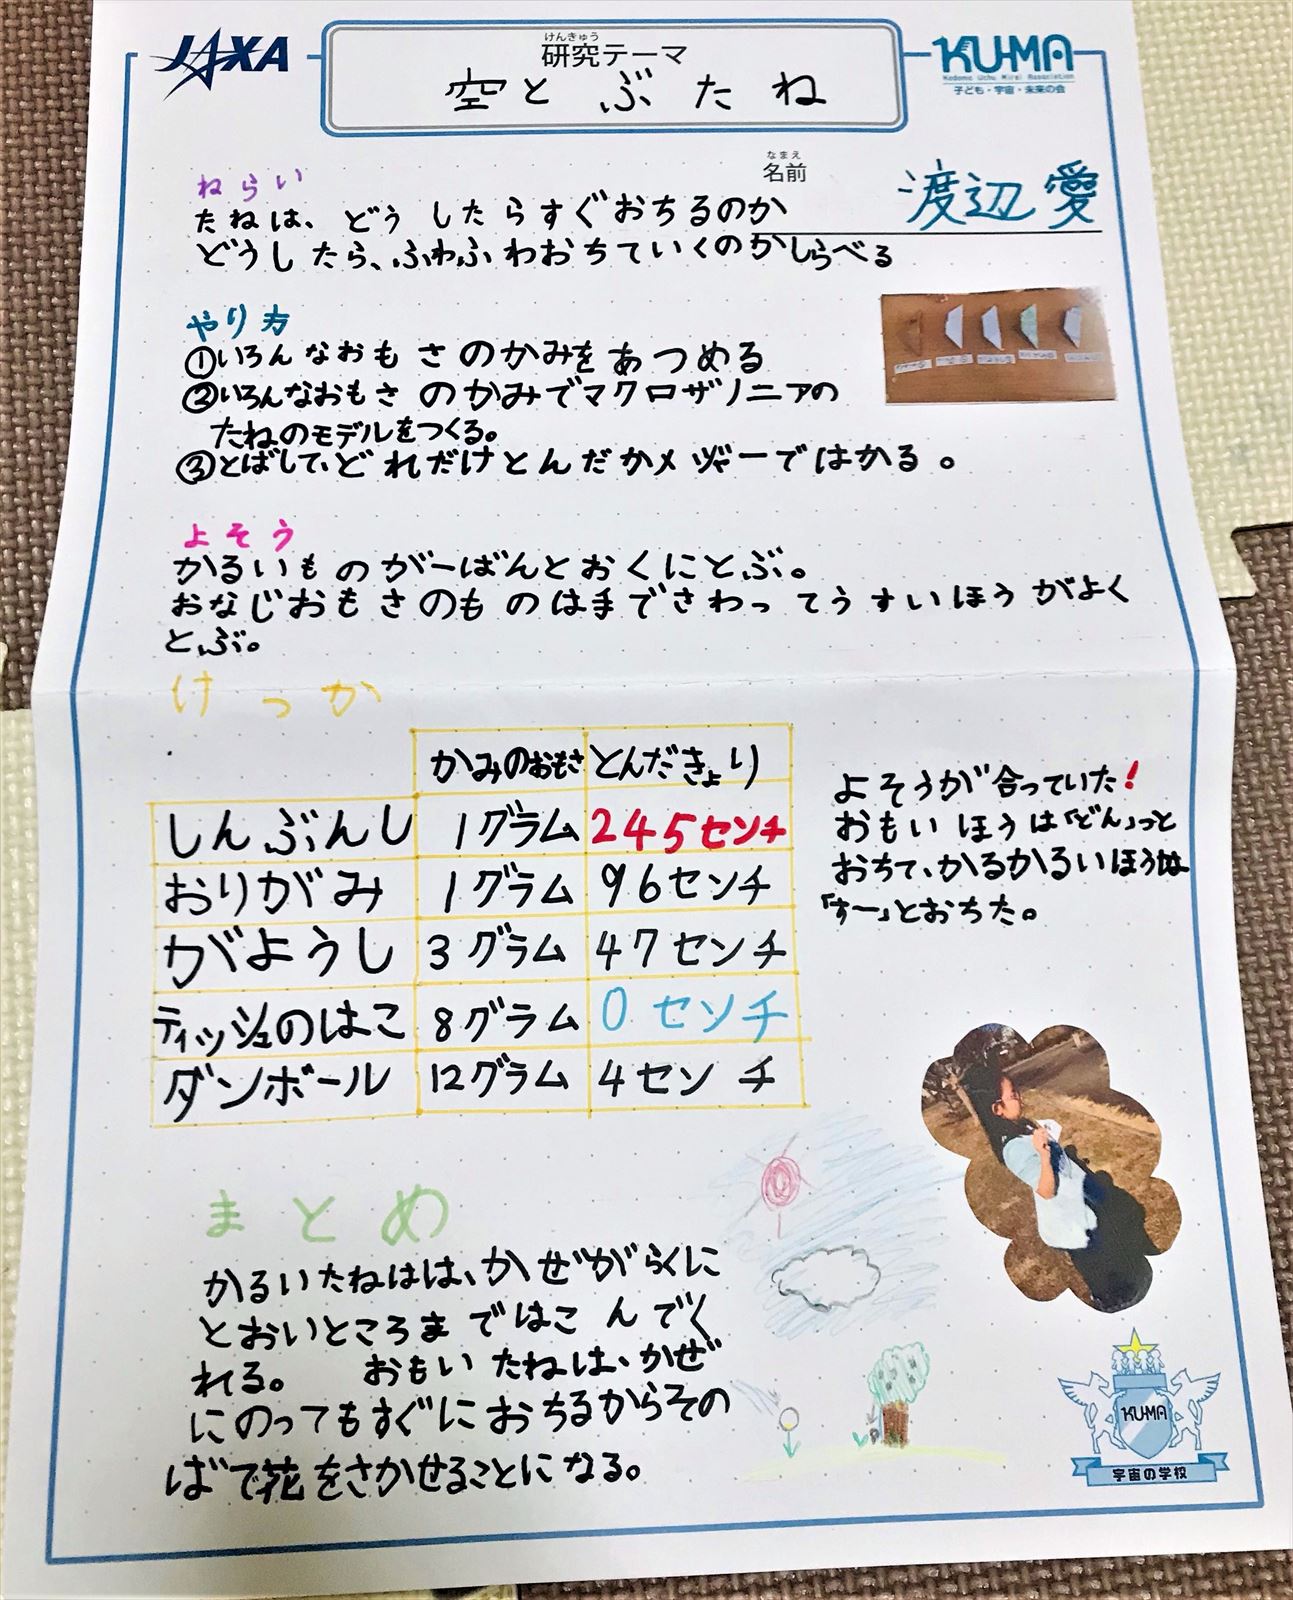 JAXA
けんきゅう
研究テーマ
空とぶたね
KU-MA
Kodomo Uchu Mirai Association
子ども・宇宙・未来の会
なまえ
名前
渡辺愛
ねらい
たねは、どうしたらすぐおちるのか
どうしたら、ふわふわおちていくのかしらべる
やり方
①いろんなおもさのかみをあつめる
②いろんなおもさのかみでマクロザノニアの
たねのモデルをつくる。
③とばして、どれだけとんだかメヂャーではかる。
よそう
かるいものがーばんとおくにとぶ。
おなじおもさのものは手でさわってうすいほうがよく
とぶ。
けっか
かみのおもさ とんだきょり
しんぶんし 1グラム 245センチ
おりがみ 1グラム 96センチ
がようし 3グラム 47センチ
ティッシュのはこ 8グラム 0センチ
ダンボール 12グラム 4センチ
よそうが合っていた!
おもいほうは「どん」っと
おちて、かるかるいほうは
「すー」とおちた。
まとめ
かるいたねはは、かぜがらくに
とおいところまではこんでく
れる。 おもいたねは、かぜ
にのってもすぐにおちるからその
ばで花をさかせることになる。
KU-MA
宇宙の学校